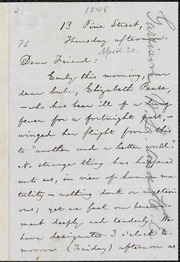 1848
13 Pine Street,
76
Thursday afternoon.
April 20.
Dear Friend:
Early this morning, our
dear babe, Elizabeth Pease,
who has been ill of a lung
fever for a fortnight past,
winged her flight from this
to "another and a better world."
No strange thing has happened
unto us, in view of human mor-
tality — nothing dark or mysteri-
ous; yet we feel our bereave-
ment deeply and tenderly. We
have designated 3 o'clock to-
morrow (Friday) afternoon as